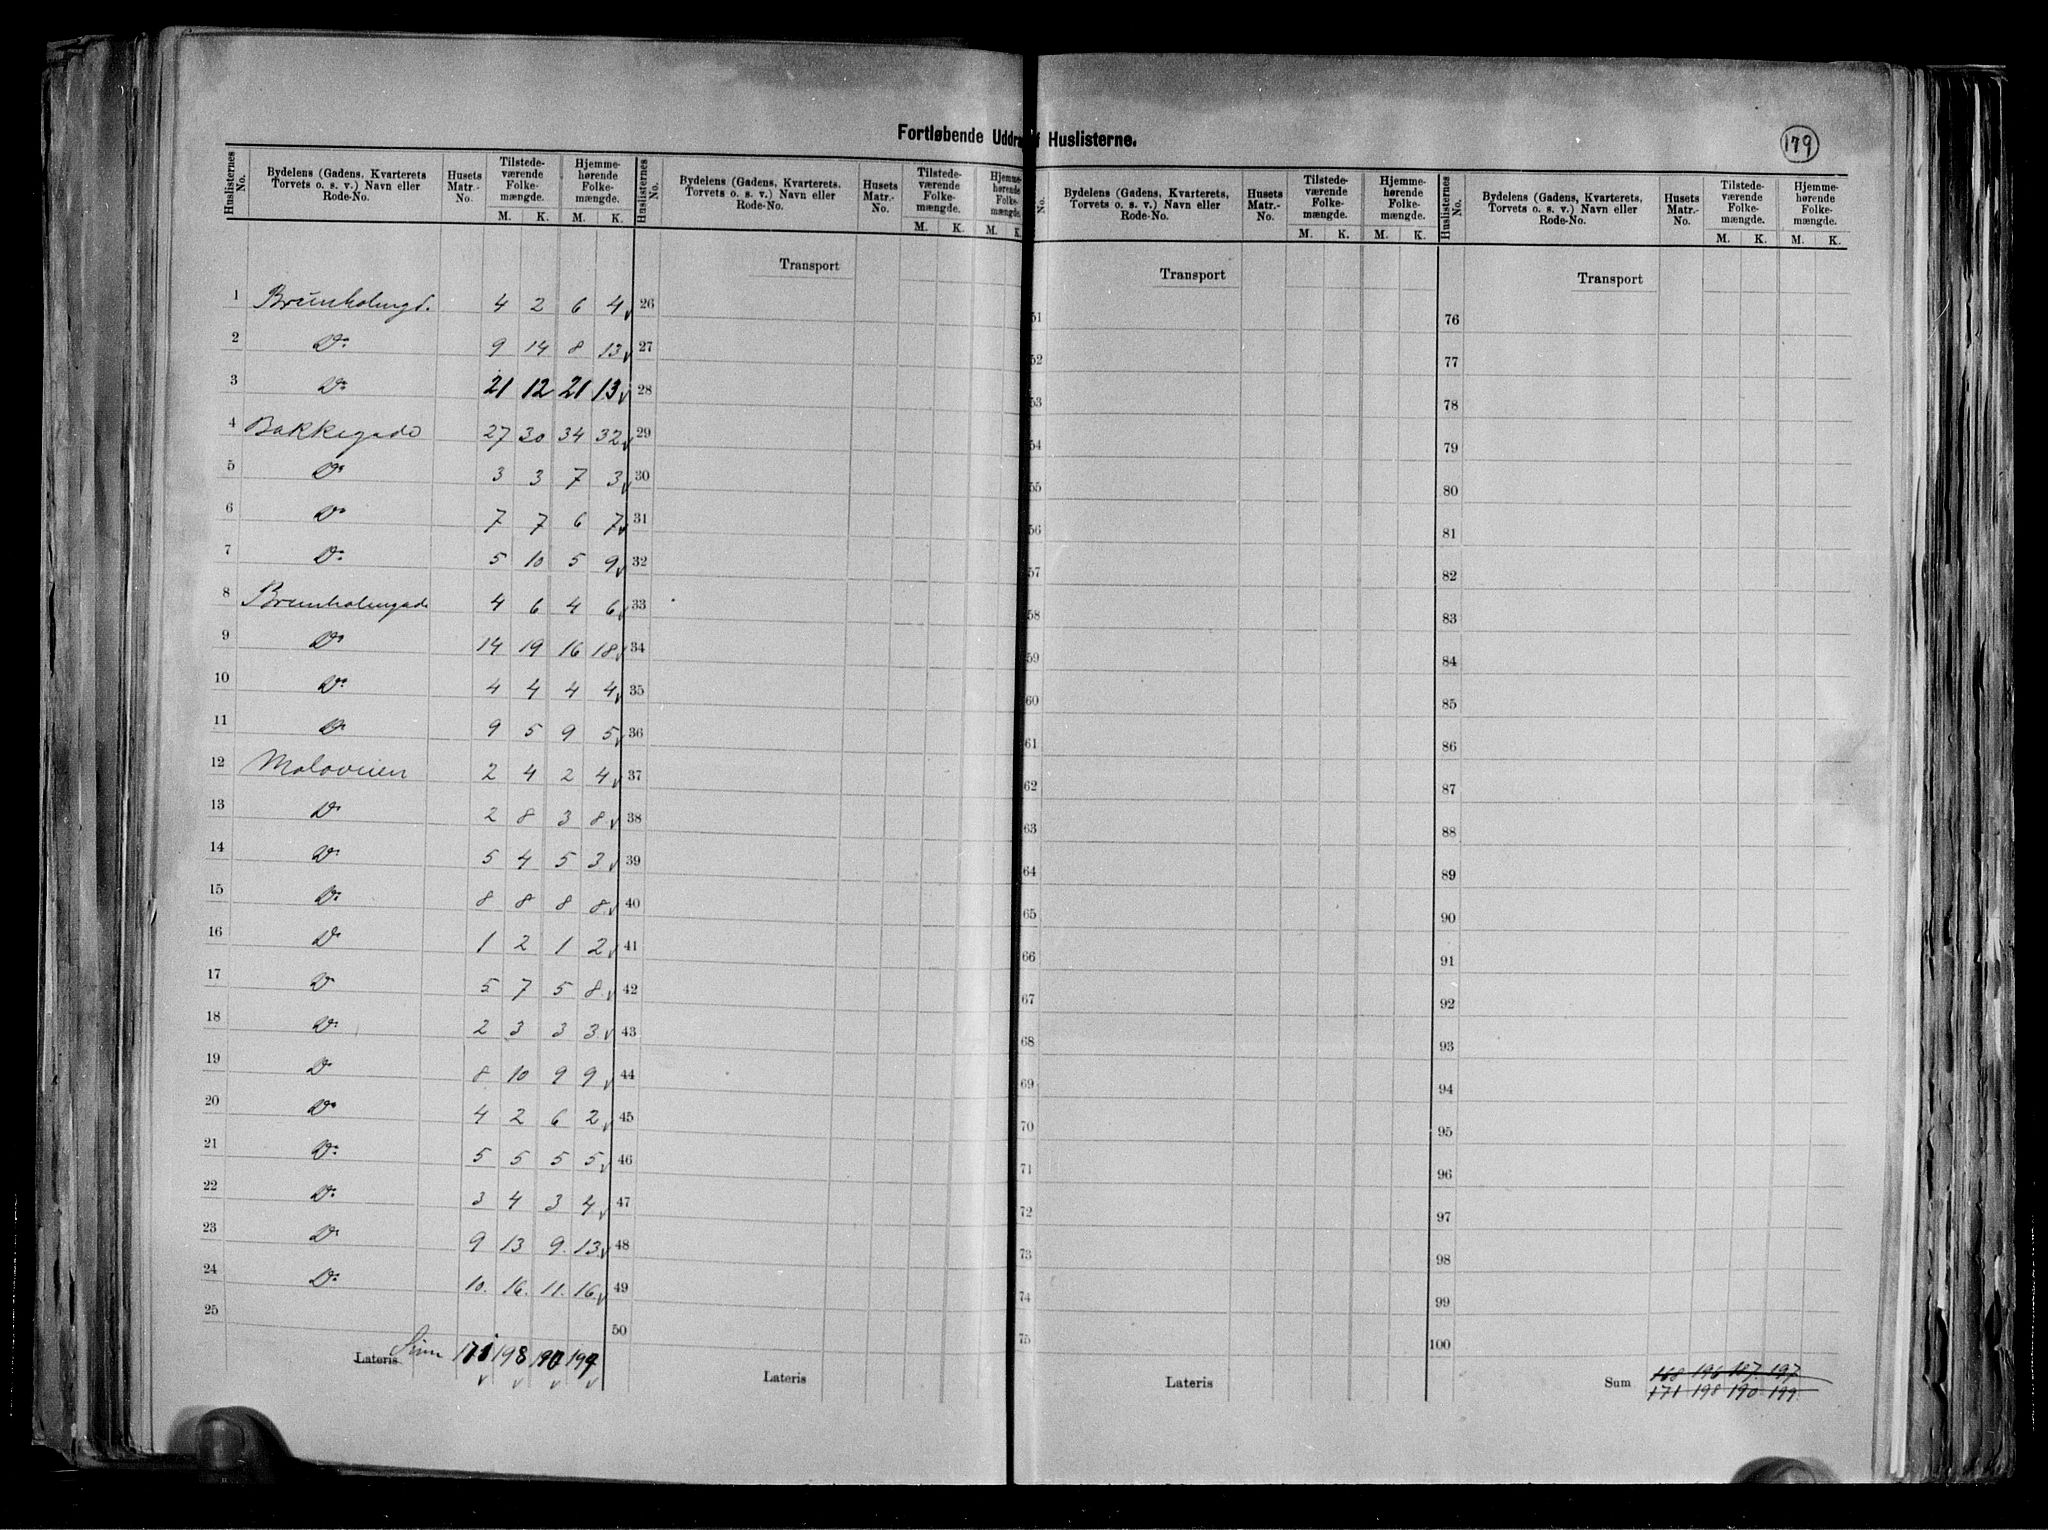 Fortløbende Uddra f Huslisterne.
179
Huslisternes No. Bydelens (Gadens, Kvarterets Torvets o. s. v.) Navn eller Rode-No. Husets Matr.-No. Tilstede-værende Folke-mængde. M. K. Hjemme-hørende Folke-mængde. M. K.
Huslisternes No. Bydelens (Gadens, Kvarterets, Torvets o. s. v.) Navn eller Rode-No. Husets Matr.-No. Tilstede-værende Folke-mængde. M. K. Hjemme-hørende Folke-mængde. M. K.
No. Bydelens (Gadens, Kvarterets, Torvets o. s. v.) Navn eller Rode-No. Husets Matr.-No. Tilstede-værende Folke-mængde. M. K. Hjemme-hørende Folke-mængde. M. K.
Huslisternes No. Bydelens (Gadens, Kvarterets, Torvets o. s. v.) Navn eller Rode-No. Husets Matr.-No. Tilstede-værende Folke-mængde. M. K. Hjemme-hørende Folke-mængde. M. K.
Transport Transport Transport
1 Brunholmgd. 4 2 6 4 26 51 76
2 Do 9 14 8 13 27 52 77
3 Do 21 12 21 13 28 53 78
4 Bakkegade 27 30 34 32 29 54 79
5 Do 3 3 7 3 30 55 80
6 Do 7 7 6 7 31 56 81
7 Do 5 10 5 9 32 57 82
8 Brunholmgade 4 6 4 6 33 58 83
9 Do 14 19 16 18 34 59 84
10 Do 4 4 4 4 35 60 85
11 Do 9 5 9 5 36 61 86
12 Moloveien 2 4 2 4 37 62 87
13 Do 2 8 3 8 38 63 88
14 Do 5 4 5 3 39 64 89
15 Do 8 8 8 8 40 65 90
16 Do 1 2 1 2 41 66 91
17 Do 5 7 5 8 42 67 92
18 Do 2 3 3 3 43 68 93
19 Do 8 10 9 9 44 69 94
20 Do 4 2 6 2 45 70 95
21 Do 5 5 5 5 46 71 96
22 Do 3 4 3 4 47 72 97
23 Do 9 13 9. 13 48 73 98
24 Do 10. 16. 11. 16 49 74 99
25 50 75 100
Lateris Sum 171 198 190 199
Lateris Lateris Sum 168 196 187. 197.
171 198 190 199.